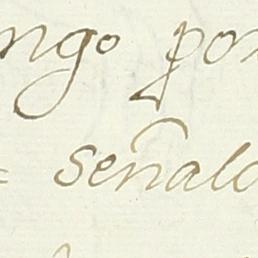 ngo por
señala